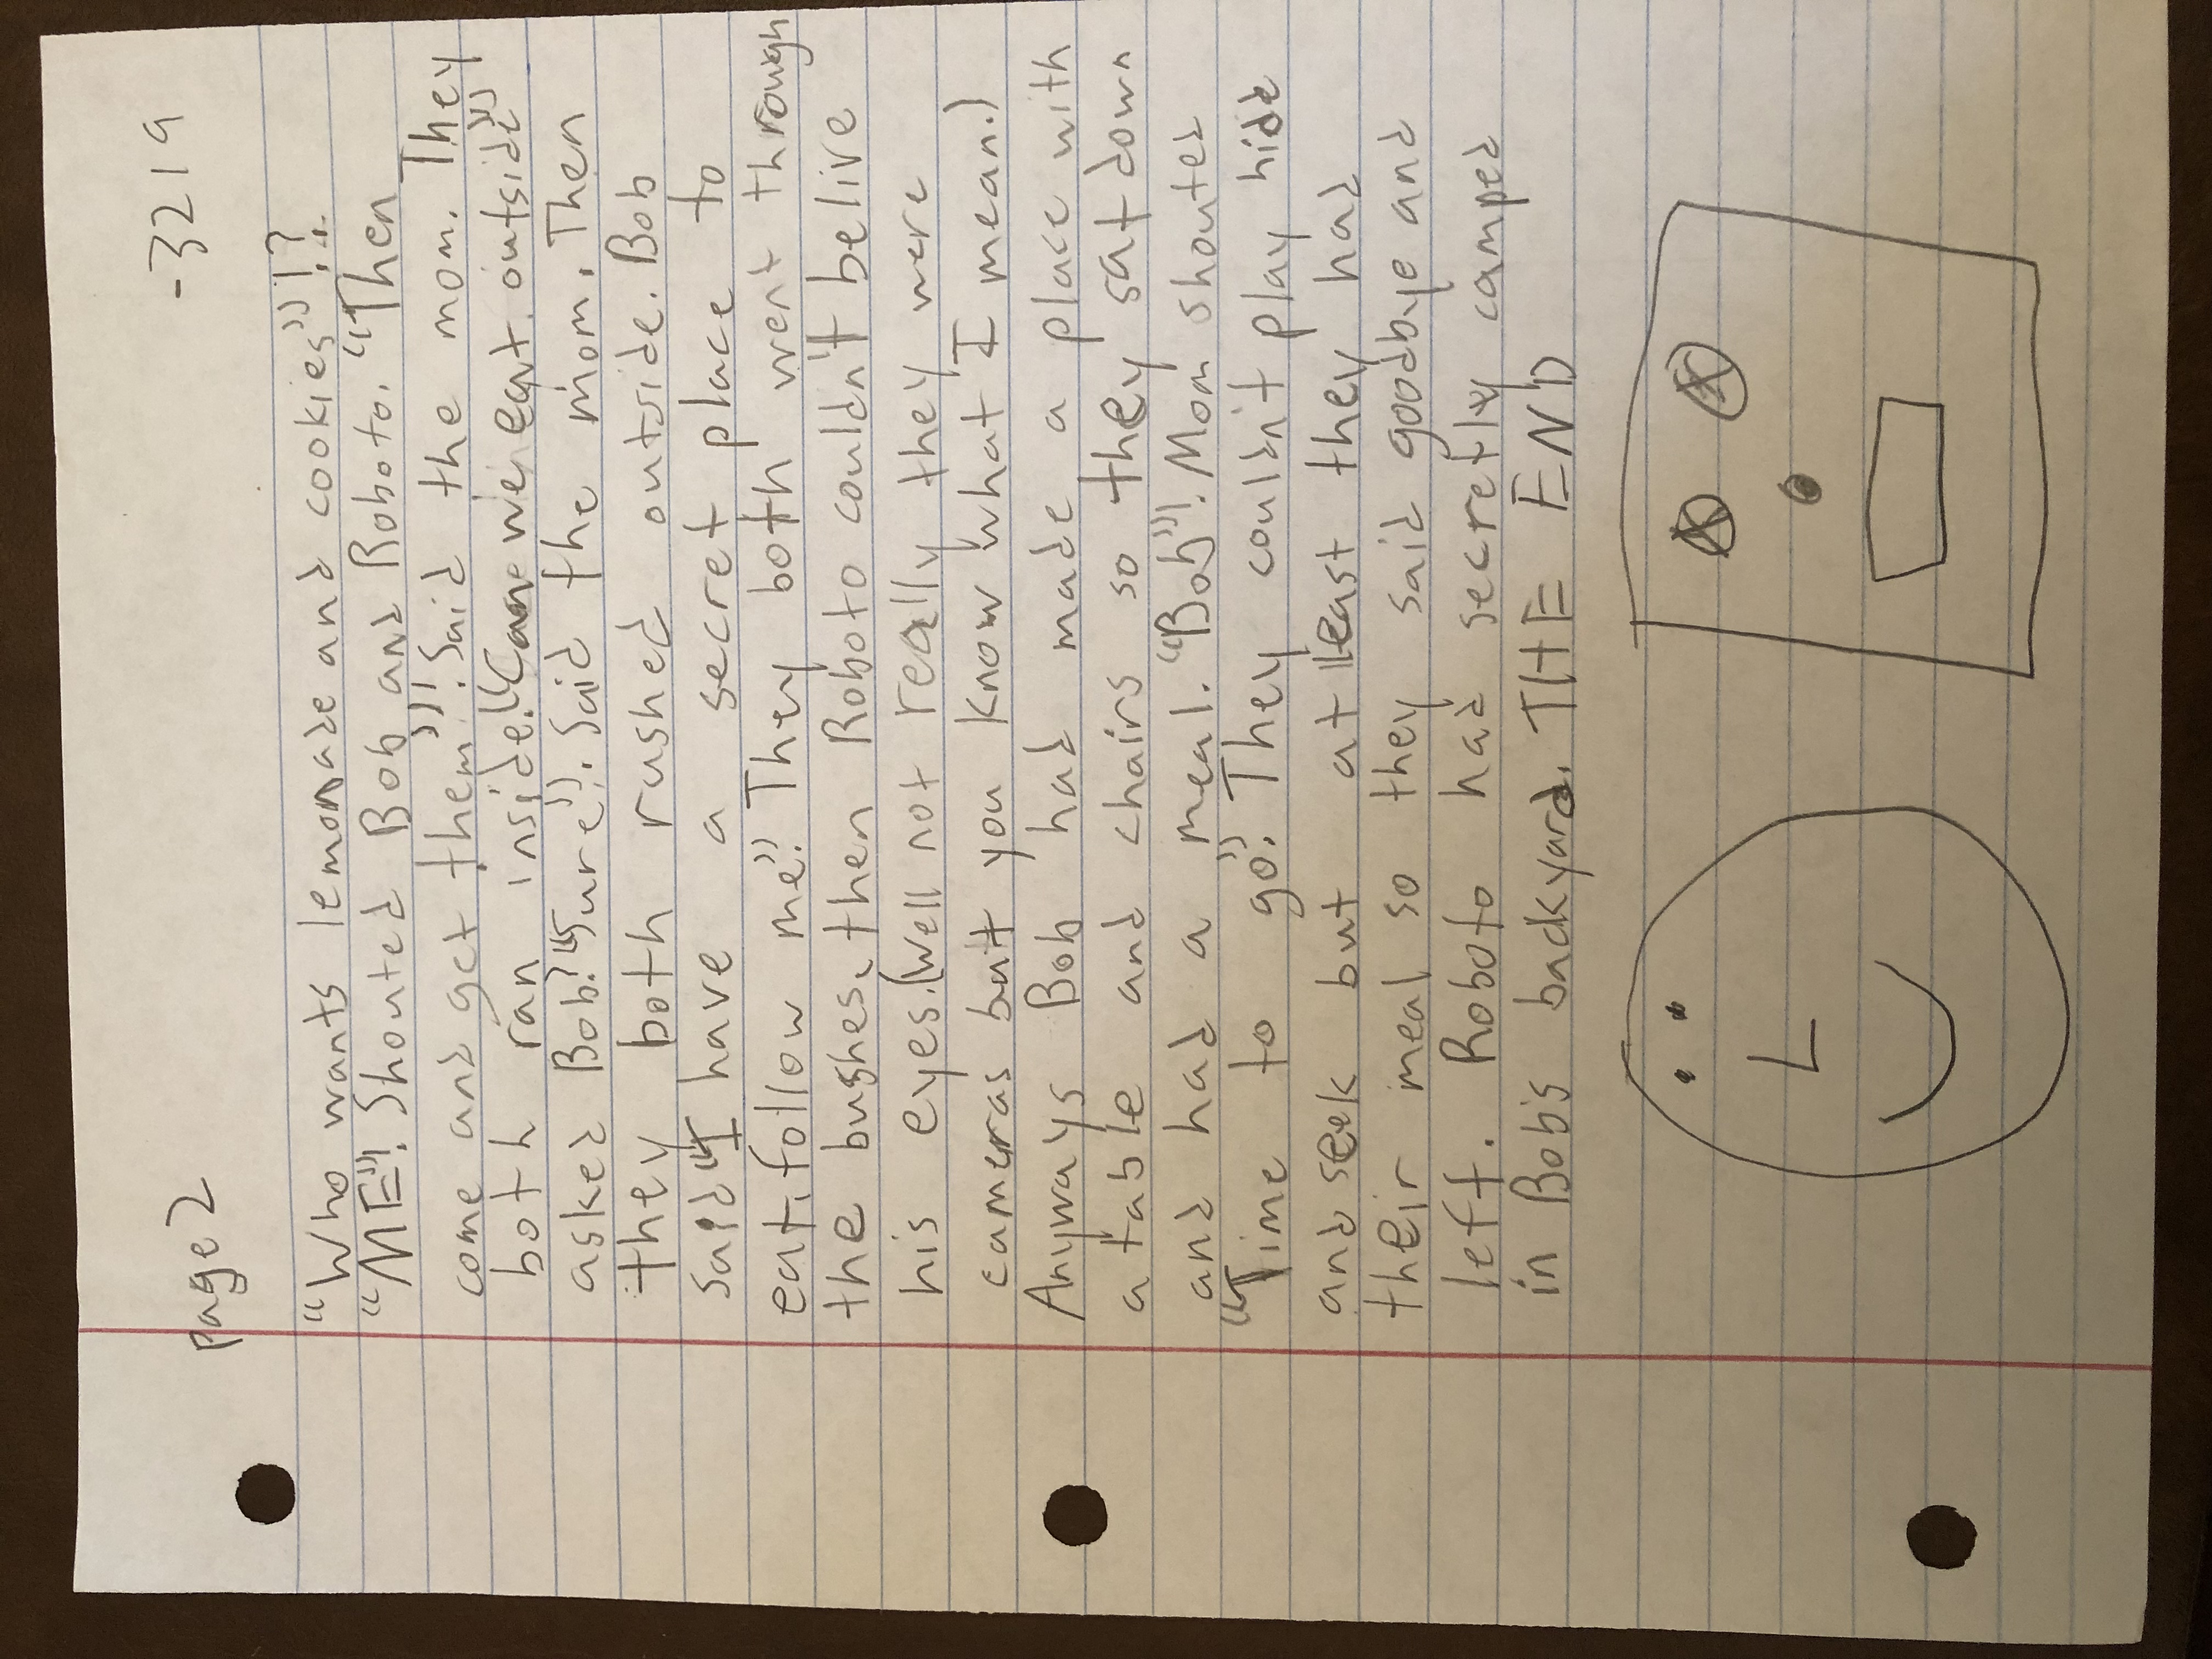 page 2
-3219
“Who wants lemonade and cookies”!?
“ME”! Shouted Bob and Roboto. “Then
come and get them”! Said the mom. They
both ran inside. “Can we eat outside”
asked Bob? “Sure”. Said the mom. Then
they both rushed outside. Bob
said “I have a secret place to
eat, follow me”. They both went through
the bushes, then Roboto couldn't belive
his eyes. (Well not really they were
cameras but you know what I mean.)
Anyways Bob had made a place with
a table and chairs so they sat down
and had a meal. “Bob”! Mom shouted
“Time to go”. They couldn't play hide
and seek but at least they had
their meal so they said goodbye and
left. Roboto had secretly camped
in Bob's backyard. THE END